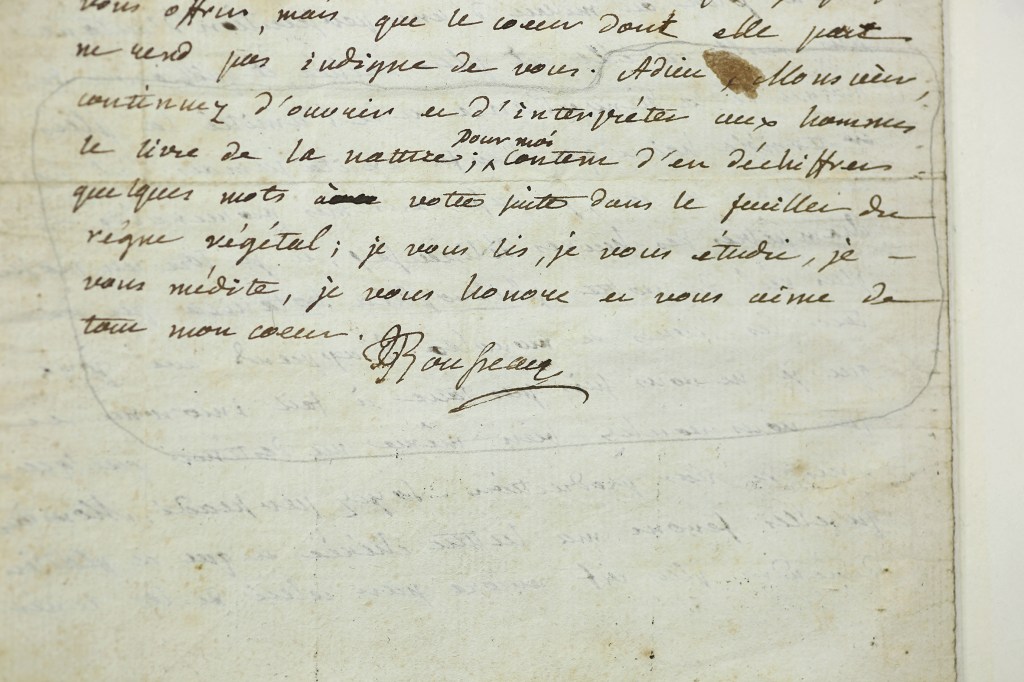 vous offrir, mais que le coeur dont elle part
ne rend pas indigne de vous. Adieu, Monsieur,
continuez d'ouvrir et d'interpréter aux hommes
le livre de la nature; Pour moi content d'en déchiffrer
quelques mots à votre suite dans le feuillet du
règne végétal; je vous lis, je vous étudie, je –
vous médite, je vous honore et vous aime de
tout mon coeur.
JJRousseau